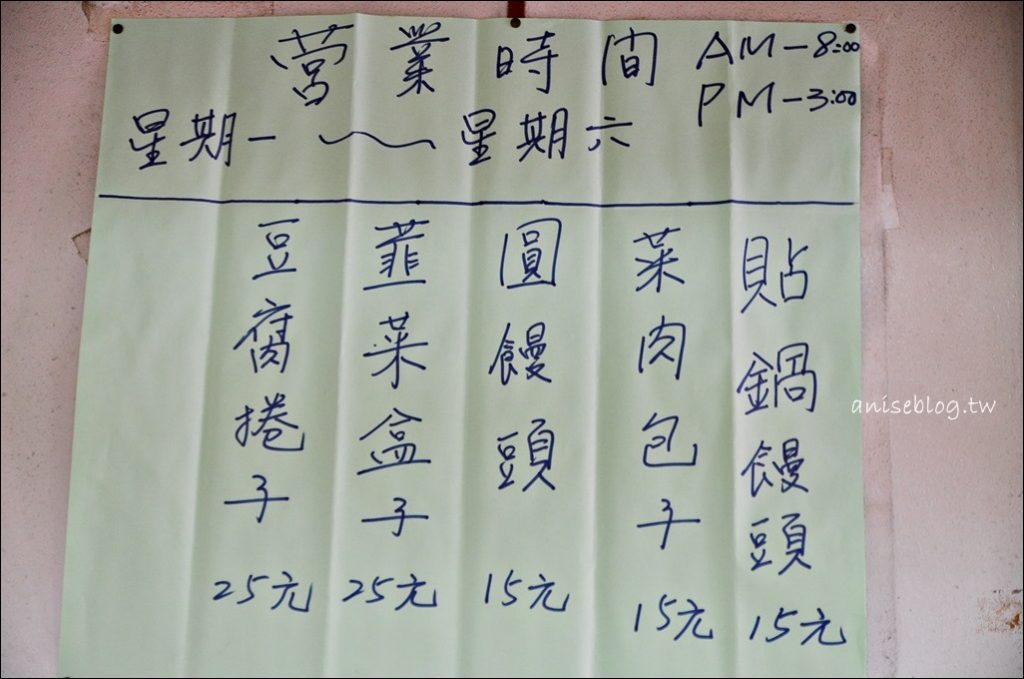 营業時間 AM-8:00
PM-3:00
星期一~星期六
貼鍋饅頭 15元
菜肉包子 15元
圓饅頭 15元
韮菜盒子 25元
豆腐捲子 25元
aniseblog.tw